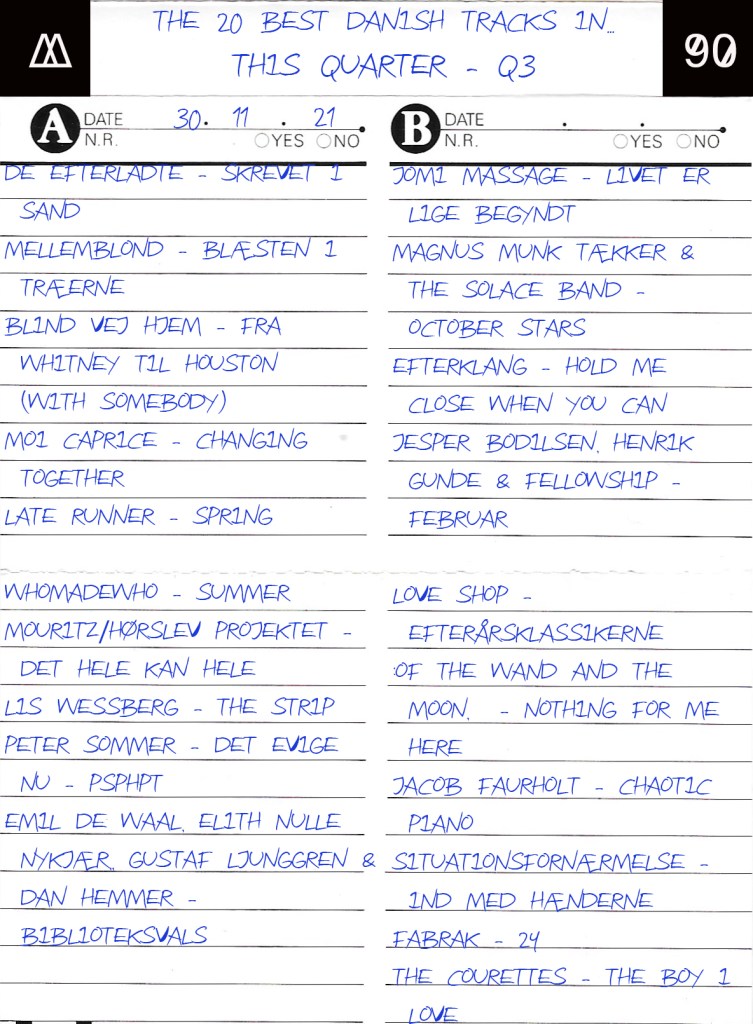 THE 20 BEST DANISH TRACKS IN...
THIS QUARTER - Q3
90
A DATE 30. 11 . 21
N.R. YES NO
DE EFTERLADTE - SKREVET I
SAND
MELLEMBLOND - BLÆSTEN I
TRÆERNE
BLIND VEJ HJEM - FRA
WHITNEY TIL HOUSTON
(WITH SOMEBODY)
MOI CAPRICE - CHANGING
TOGETHER
LATE RUNNER - SPRING
WHOMADEWHO - SUMMER
MOURITZ/HØRSLEV PROJEKTET -
DET HELE KAN HELE
LIS WESSBERG - THE STRIP
PETER SOMMER - DET EVIGE
NU - PSPHPT
EMIL DE WAAL, ELITH NULLE
NYKJÆR, GUSTAF LJUNGGREN &
DAN HEMMER -
BIBLIOTEKSVALS
B DATE . .
N.R. YES NO
JOMI MASSAGE - LIVET ER
LIGE BEGYNDT
MAGNUS MUNK TÆKKER &
THE SOLACE BAND -
OCTOBER STARS
EFTERKLANG - HOLD ME
CLOSE WHEN YOU CAN
JESPER BODILSEN, HENRIK
GUNDE & FELLOWSHIP -
FEBRUAR
LOVE SHOP -
EFTERÅRSKLASSIKERNE
:OF THE WAND AND THE
MOON: - NOTHING FOR ME
HERE
JACOB FAURHOLT - CHAOTIC
PIANO
SITUATIONSFORNÆRMELSE -
IND MED HÆNDERNE
FABRAK - 24
THE COURETTES - THE BOY I
LOVE